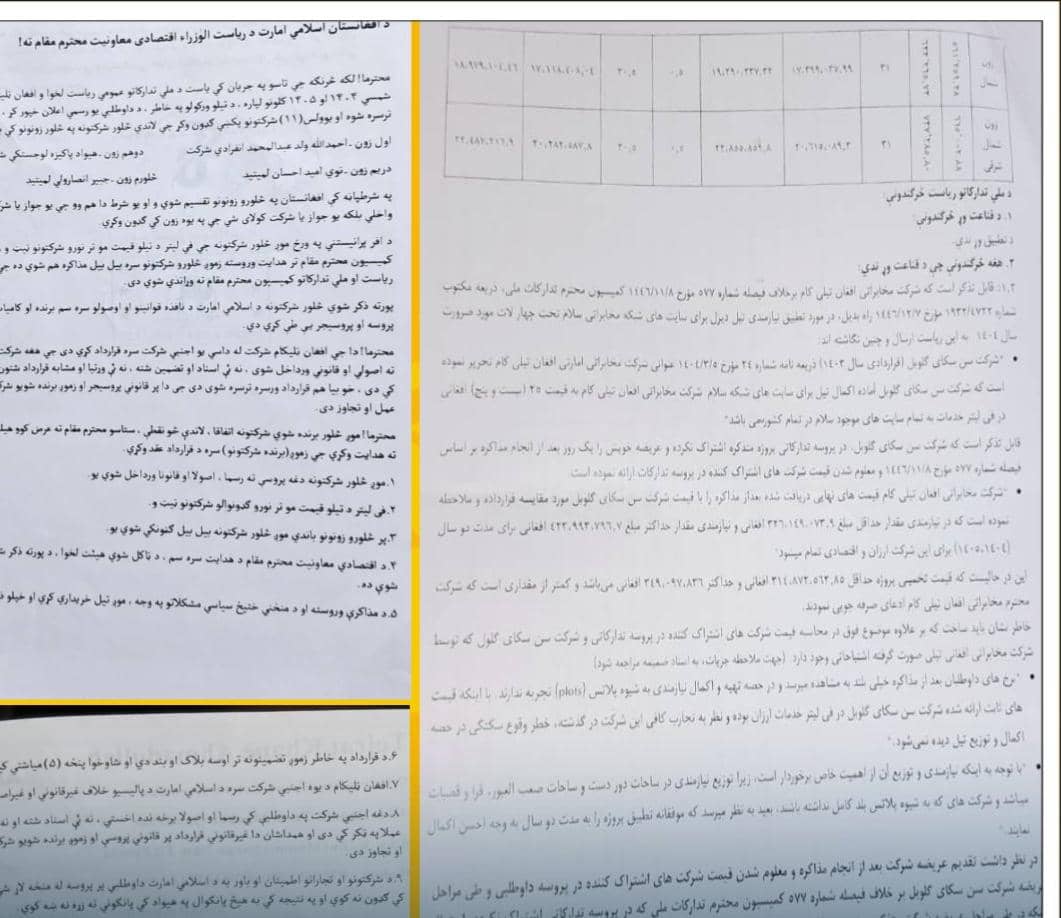 د افغانستان اسلامي امارت د ریاست الوزراء اقتصادی معاونیت محترم مقام ته!
محترما! لکه څرنګه جي تاسو په جریان کي یاست د ملي تدارکاتو عمومي ریاست لخوا و افغان
شمسي ۱۴۰۴ او ۱۴۰۵ کلونو لپاره، د تیلو ورکولو په خاطر، د داوطلبي یو رسمي اعلان خپور کړ،
ترسره شوه او یوولس (۱۱) شرکتونو پکښي ګډون وکړ جي لاندي څلور شرکتونه په څلور زونونو کي
اول زون ـ احمدالله ولد عبدالمحمد انفرادي شرکت دوهم زون ـ هیواد پاکیزه لوجستکي
دریم زون ـ نوي امید احسان لمیتید څلورم زون ـ جبیر انصارولي لمیتید
په شرطپاڼه کي افغانستان په څلورو زونونو تقسیم شوي و او یو شرط دا هم وو جي یو جواز یا
واخلي بلکه یو جواز یا شرکت کولای شي جي په یوه زون کي ګډون وکړي
د آفر پرانیستني په ورځ موږ څلور شرکتونه جي في لیتر د تیلو قیمت مو تر نورو شرکتونو ټیټ و
کمیسیون محترم مقام تر هدایت وروسته زموږ څلورو شرکتونو سره بیل بیل مذاکره هم شوي ده جي
ریاست او ملي تدارکاتو کمیسیون محترم مقام ته وړاندي شوي دی.
پورته ذکر شوي څلور شرکتونه د اسلامي امارت د نافذه قوانینو او اصولو سره سم برنده او
پروسه او پروسیجر یي طي کړي دي.
محترما! دا جي افغان ټلیکام شرکت له داسي یو اجنبي شرکت سره قرارداد کړی دی جي هغه
ته اصولي او قانوني ورداخل شوی، نه ئي اسناد او تضمین شته، نه ئي ورتیا او مشابه قرارداد
کي دی، خو بیا هم قرارداد ورسره ترسره شوی دی جي دا پر قانوني پروسیجر او زموږ برنده شویو
عمل او تجاوز دی.
محترما! موږ څلور برنده شوي شرکتونه اتفاقا، لاندي څو نقطي، ستاسو محترم مقام ته عرض کوو
ته هدایت وکړي جي زموږ (برنده شرکتونو) سره د قرارداد عقد وکړي.
۱.موږ څلور شرکتونه دغه پروسې ته رسما، اصولا او قانونا ورداخل شوي یو.
۲.في لیتر د تیلو قیمت مو تر نورو ګډونوالو شرکتونو ټیټ و.
۳.پر څلورو زونونو باندي موږ څلور شرکتونه بیل بیل ګټونکي شوي یو.
۴.د اقتصادي معاونیت محترم مقام د هدایت سره سم، د ټاکل شوي هیئت لخوا، د پورته ذکر
شوي ده.
۵.د مذاکرې وروسته او د منځني ختیځ سیاسي مشکلاتو په وجه، موږ تیل خریداري کړي او خپلو
۶.د قرارداد په خاطر زموږ تضمینونه تر اوسه بلاک او بند دي او شاوخوا پنځه (۵) میاشتي
۷.افغان ټلیکام د یوه اجنبي شرکت سره د اسلامي امارت د پالیسیو خلاف غیرقانوني او
۸.دغه اجنبي شرکت په داوطلبي کي رسما او اصولا برخه نده اخستي، نه ئي اسناد شته او
عملا په ټکر کي دی او همداشان دا غیرقانوني قرارداد پر قانوني پروسې او زموږ برنده شویو
او تجاوز دی.
۹.د شرکتونو او تجارانو اطمینان او باور په د اسلامي امارت داوطلبي پر پروسه له منځه
کي ګډون نه کوي او په نتیجه کي به هیڅ پانګوال په هیواد کي پانګوني ته زړه نه ښه کوي.
زون شمال ۳۱ ۱۷،۳۹۹،۰۳۷.۹۹ ۱۹،۲۹۰،۲۳۷.۳۲ ۰،۵ ۳۰،۵ ۱۷،۱۱۸،۴۰۸،۰۴ ۱۸،۹۷۹،۱۰۴.۴۶
زون شمال شرقی ۳۱ ۲۰،۶۱۵،۰۸۹.۳ ۲۲،۸۵۵،۸۵۹.۸ ۰،۵ ۳۰،۵ ۲۰،۲۸۲،۵۸۷.۸ ۲۲،۴۸۷،۲۱۶.۹
د ملي تدارکاتو ریاست څرګندونې:
۱. د قناعت وړ څرګندونې:
د تطبیق وړ ندي.
۲. هغه څرګندونې چې د قناعت وړ ندي:
۱،۲: قابل تذکر است که شرکت مخابراتی افغان تیلی کام برخلاف فیصله شماره ۵۷۷ مؤرخ ۱۴۴۶/۱۱/۸ کمیسیون محترم تدارکات ملی، ذریعه مکتوب
شماره ۱۹۳۲/۴۷۲۲ مؤرخ ۱۴۴۶/۱۲/۷ راه بدیل، در مورد تطبیق نیازمندی تیل دیزل برای سایت های شبکه مخابراتی سلام تحت چهار لات مورد ضرورت
سال ۱۴۰۴ به این ریاست ارسال و چنین نگاشته اند:
• "شرکت سن سکای گلوبل (قراردادی سال ۱۴۰۳) ذریعه نامه شماره ۲۴ مؤرخ ۱۴۰۴/۳/۵ عنوانی شرکت مخابراتی امارتی افغان تیلی کام تحریر نموده
است که شرکت سن سکای گلوبل آماده اکمال تیل برای سایت های شبکه سلام شرکت مخابراتی افغان تیلی کام به قیمت ۲۵ (بیست و پنج) افغانی
در فی لیتر خدمات به تمام سایت های موجود سلام در تمام کشورمی باشد"
قابل تذکر است که شرکت سن سکای گلوبل، در پروسه تدارکاتی پروژه متذکره اشتراک نکرده و عریضه خویش را یک روز بعد از انجام مذاکره بر اساس
فیصله شماره ۵۷۷ مؤرخ ۱۴۴۶/۱۱/۸ و معلوم شدن قیمت شرکت های اشتراک کننده در پروسه تدارکات ارائه نموده است.
• "شرکت مخابراتی افغان تیلی کام قیمت های نهایی دریافت شده بعداز مذاکره را با قیمت شرکت سن سکای گلوبل مورد مقایسه قرارداده و ملاحظه
نموده است که در نیازمندی مقدار حداقل مبلغ ۳۲۶،۱۴۹،۰۷۳.۹ افغانی و نیازمندی مقدار حداکثر مبلغ ۴۲۳،۹۹۳،۷۹۶.۷ افغانی برای مدت دو سال
(۱۴۰۵،۱۴۰۴) برای این شرکت ارزان و اقتصادی تمام میشود"
این در حالیست که قیمت تخمینی پروژه حداقل ۳۱۴،۸۷۲،۵۶۴،۸۵ افغانی و حداکثر ۳۴۹،۰۹۷،۸۳۶ افغانی می‌باشد و کمتر از مقداری است که شرکت
محترم مخابراتی افغان تیلی کام ادعای صرفه جویی نمودند.
خاطر نشان باید ساخت که بر علاوه موضوع فوق در محاسبه قیمت شرکت های اشتراک کننده در پروسه تدارکاتی و شرکت سن سکای گلوبل که توسط
شرکت مخابراتی افغانی تیلی صورت گرفته اشتباهاتی وجود دارد (جهت ملاحظه جزیات، به اسناد ضمیمه مراجعه شود)
• "نرخ های داوطلبان بعد از مذاکره خیلی بلند به مشاهده میرسد و در حصه تهیه و اکمال نیازمندی به شیوه پلاتس (plots) تجربه ندارند. با اینکه قیمت
های ثابت ارائه شده شرکت سن سکای گلوبل در فی لیتر خدمات ارزان بوده و نظر به تجارب کافی این شرکت در گذشته، خطر وقوع سکتگی در حصه
اکمال و توزیع تیل دیده نمی‌شود."
• "با توجه به اینکه نیازمندی و توزیع آن از اهمیت خاص برخوردار است، زیرا توزیع نیازمندی در ساحات دور دست و ساحات صعب العبور، قرا و قصبات
میباشد و شرکت های که به شیوه پلاتس بلد کامل نداشته باشند، بعید به نظر میرسد که موفقانه تطبیق پروژه را به مدت دو سال به وجه احسن اکمال
نمایند."
در نظر داشت تقدیم عریضه شرکت بعد از انجام مذاکره و معلوم شدن قیمت شرکت های اشتراک کننده در پروسه داوطلبی و طی مراحل
عریضه شرکت سن سکای گلوبل بر خلاف فیصله شماره ۵۷۷ کمیسیون محترم تدارکات ملی که در پروسه تدارکاتی اشتراک نکرده